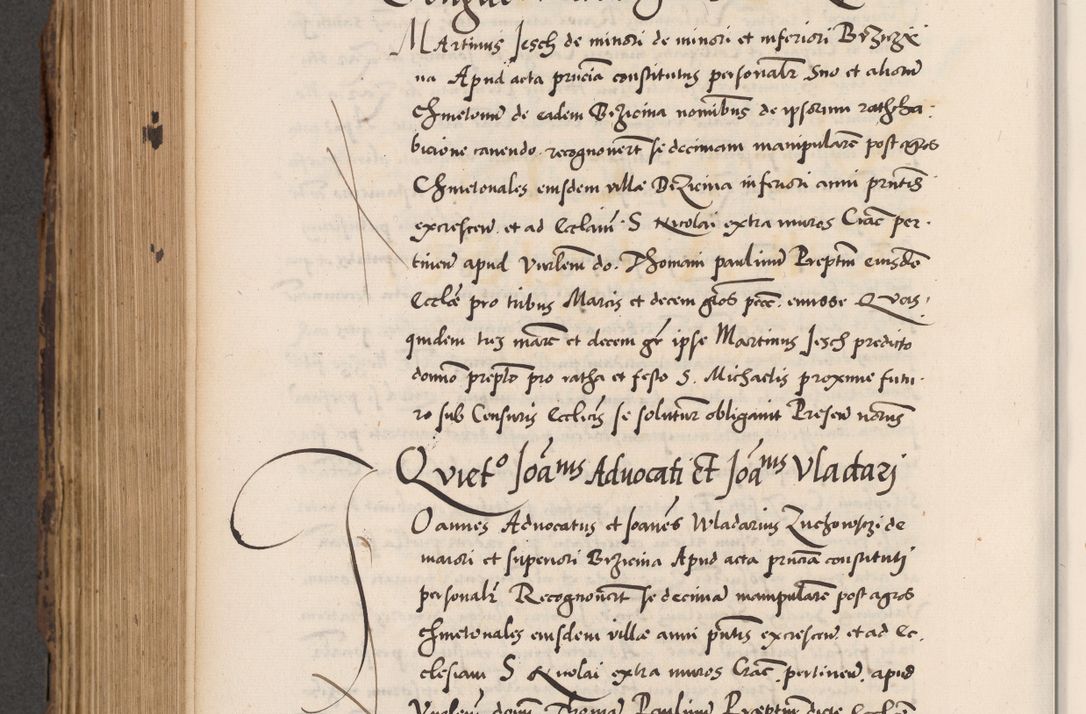 Martinus Jesch de minori de minori et inferiori Brzezi
na Apud acta pñcia constitutus personalr Suo et aliorũ
Chmetonũ de eadem Brzezina nomĩbus de ipsorum rathiha
bicione cavendo recognovert se decimam manipularẽ post agros
Chmetonales eiusdem villæ Brzezina inferiori anni pñtis
excrescen. et ad Eccłiam S Nicolai extra muros Crac per
tinen apud Venłem do. Thomam paulinũ Preptm eiusdẽ
Eccłæ pro tribus Marcis et decem gros pecc. emisse Quas
quidem tres marc et decem gr ipse Martinus Jesch predicto
domino prepto pro ratha et festo S. Michaelis proxime futu
ro sub Censuris Ecclicis se soluturũ obligavit Presen notrius
Quieto Joãnis Advocati Et Joãnis Vladari
Joannes Advocatus et Joanes Wladarius Zuchowsczi de
maiori et superiori Brzezina Apud acta pñcia constituti
personalr Recognovert se decimã manipularẽ post agros
chmetonales eiusdem villæ anni pñtis excrescen. et ad Ec
clesiam S Nicolai extra muros Crac pertinen. apud
Venłem dnm Thomã Paulinũ Præptm dicte Eccłie